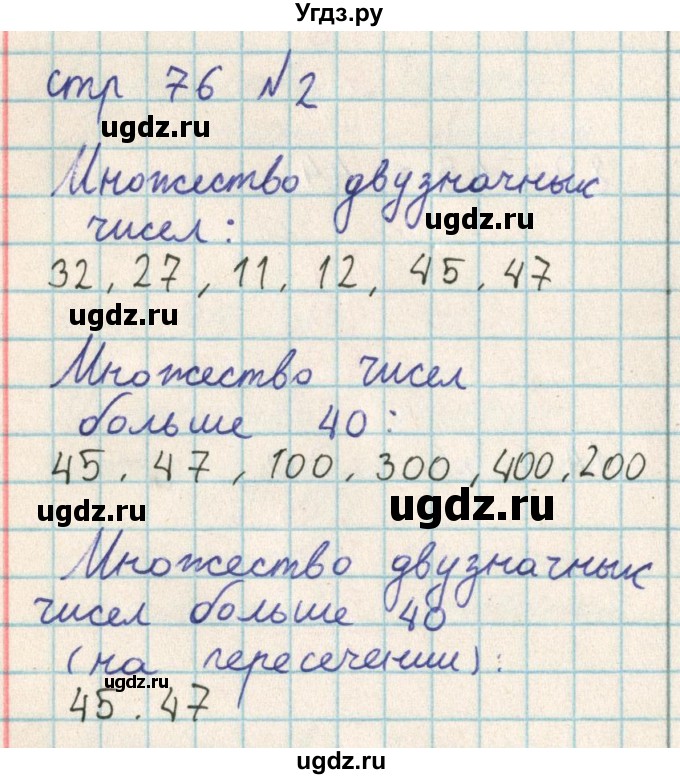 Угдз.ру
стр 76 №2
ugdz.ru
Множество двузначных
ugdz.ru
чисел:
32, 27, 11, 12, 45, 47
ugdz.ru
Множество чисел
больше 40:
45, 47, 100, 300, 400, 200
ugdz.ru
ugdz.ru
Множество двузначных
чисел больше 40
(на пересечении):
ugdz.ru
45, 47
ugdz.ru